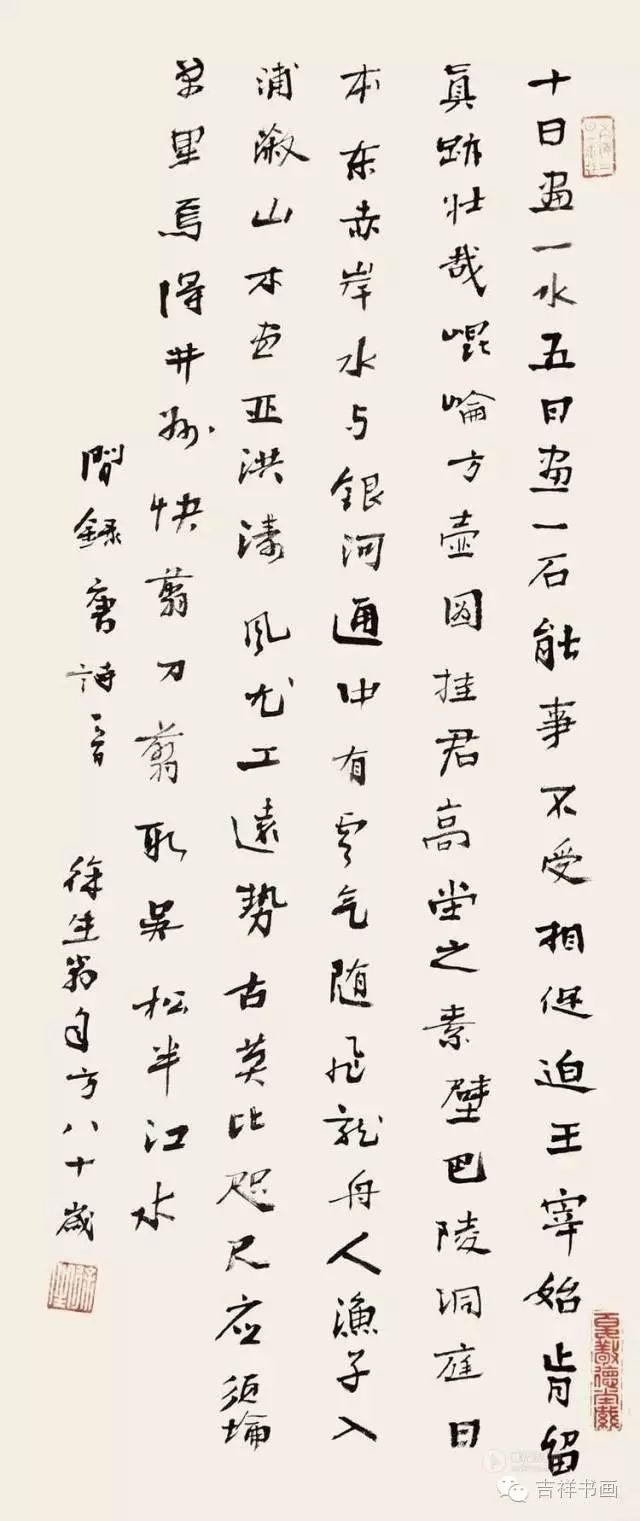 十日画一水五日画一石能事不受相促迫王宰始肯留
真跡壮哉崐崘方壶图挂君高堂之素壁巴陵洞庭日
本东赤岸水与银河通中有雲气随飛龙舟人漁子入
浦漵山木尽亚洪濤風尤工遠势古莫比咫尺应须論
万里焉得并州快剪刀剪取吴松半江水
間録唐詩一首
徐生翁年方八十歲
吉祥书画